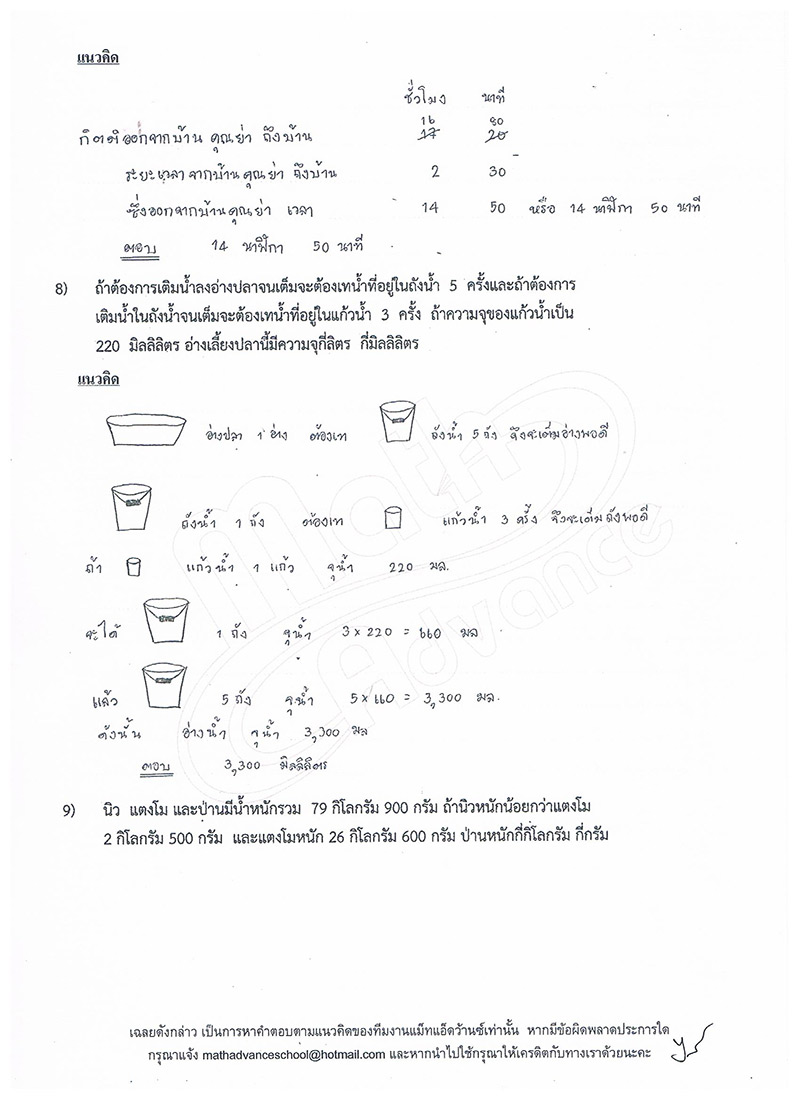 แนวคิด
ชั่วโมง นาที
16 80
17 20
กิตติออกจากบ้าน คุณย่า ถึงบ้าน
ระยะเวลา จากบ้านคุณย่า ถึงบ้าน 2 30
ซึ่งออกจากบ้านคุณย่า เวลา 14 50 หรือ 14 นาฬิกา 50 นาที
ตอบ 14 นาฬิกา 50 นาที
8) ถ้าต้องการเติมน้ำลงอ่างปลาจนเต็มจะต้องเทน้ำที่อยู่ในถังน้ำ 5 ครั้งและถ้าต้องการ
เติมน้ำในถังน้ำจนเต็มจะต้องเทน้ำที่อยู่ในแก้วน้ำ 3 ครั้ง ถ้าความจุของแก้วน้ำเป็น
220 มิลลิลิตร อ่างเลี้ยงปลานี้มีความจุกี่ลิตร กี่มิลลิลิตร
แนวคิด
อ่างปลา 1 อ่าง ต้องเท ถังน้ำ 5 ถัง จึงจะเต็มอ่างพอดี
ถังน้ำ 1 ถัง ต้องเท แก้วน้ำ 3 ครั้ง จึงจะเต็มถังพอดี
ถ้า แก้วน้ำ 1 แก้ว จุน้ำ 220 มล.
จะได้ 1 ถัง จุน้ำ 3 x 220 = 660 มล
แล้ว 5 ถัง จุน้ำ 5 x 660 = 3,300 มล.
ดังนั้น อ่างน้ำ จุน้ำ 3,300 มล
ตอบ 3,300 มิลลิลิตร
9) นิว แตงโม และป่านมีน้ำหนักรวม 79 กิโลกรัม 900 กรัม ถ้านิวหนักน้อยกว่าแตงโม
2 กิโลกรัม 500 กรัม และแตงโมหนัก 26 กิโลกรัม 600 กรัม ป่านหนักกี่กิโลกรัม กี่กรัม
Math Advance
เฉลยดังกล่าว เป็นการหาคำตอบตามแนวคิดของทีมงานแม็ทแอ็ดว้านซ์เท่านั้น หากมีข้อผิดพลาดประการใด
กรุณาแจ้ง mathadvanceschool@hotmail.com และหากนำไปใช้กรุณาให้เครดิตกับทางเราด้วยนะคะ